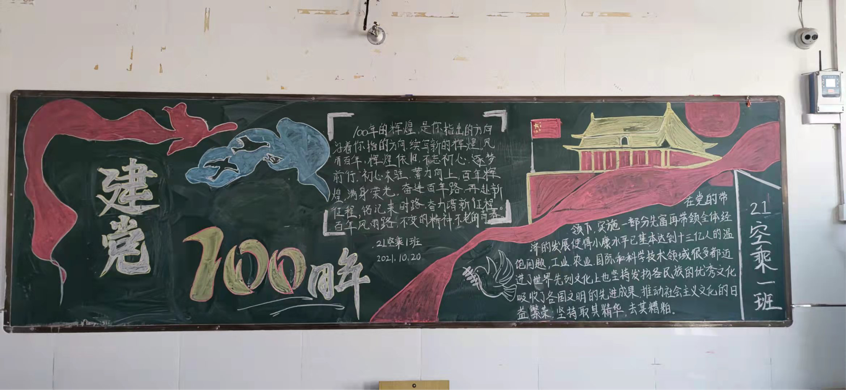 建党
100周年
100年的辉煌,是你指出的方向
沿着你指的方向,续写新的辉煌,风
前行,初心未改,蒙力向上,百年辉
煌满身荣光,奋进百年路,再赴新
征程,铭记来时路,奋力谱新征程
百年风雨路,不变的精神不老的
21空乘1班
2021.10.20
在党的带
领下,实施一部分先富再带领全体经
济的发展使得小康水平已基本达到十三亿人的温
饱问题,工业农业国防和科学技术领域很多都迈
进了世界先列文化上也坚持发扬各民族的优秀文化
吸收了各国文明的先进成果,推动社会主义文化的日
益繁荣,坚持取其精华,去其糟粕.
21空乘一班